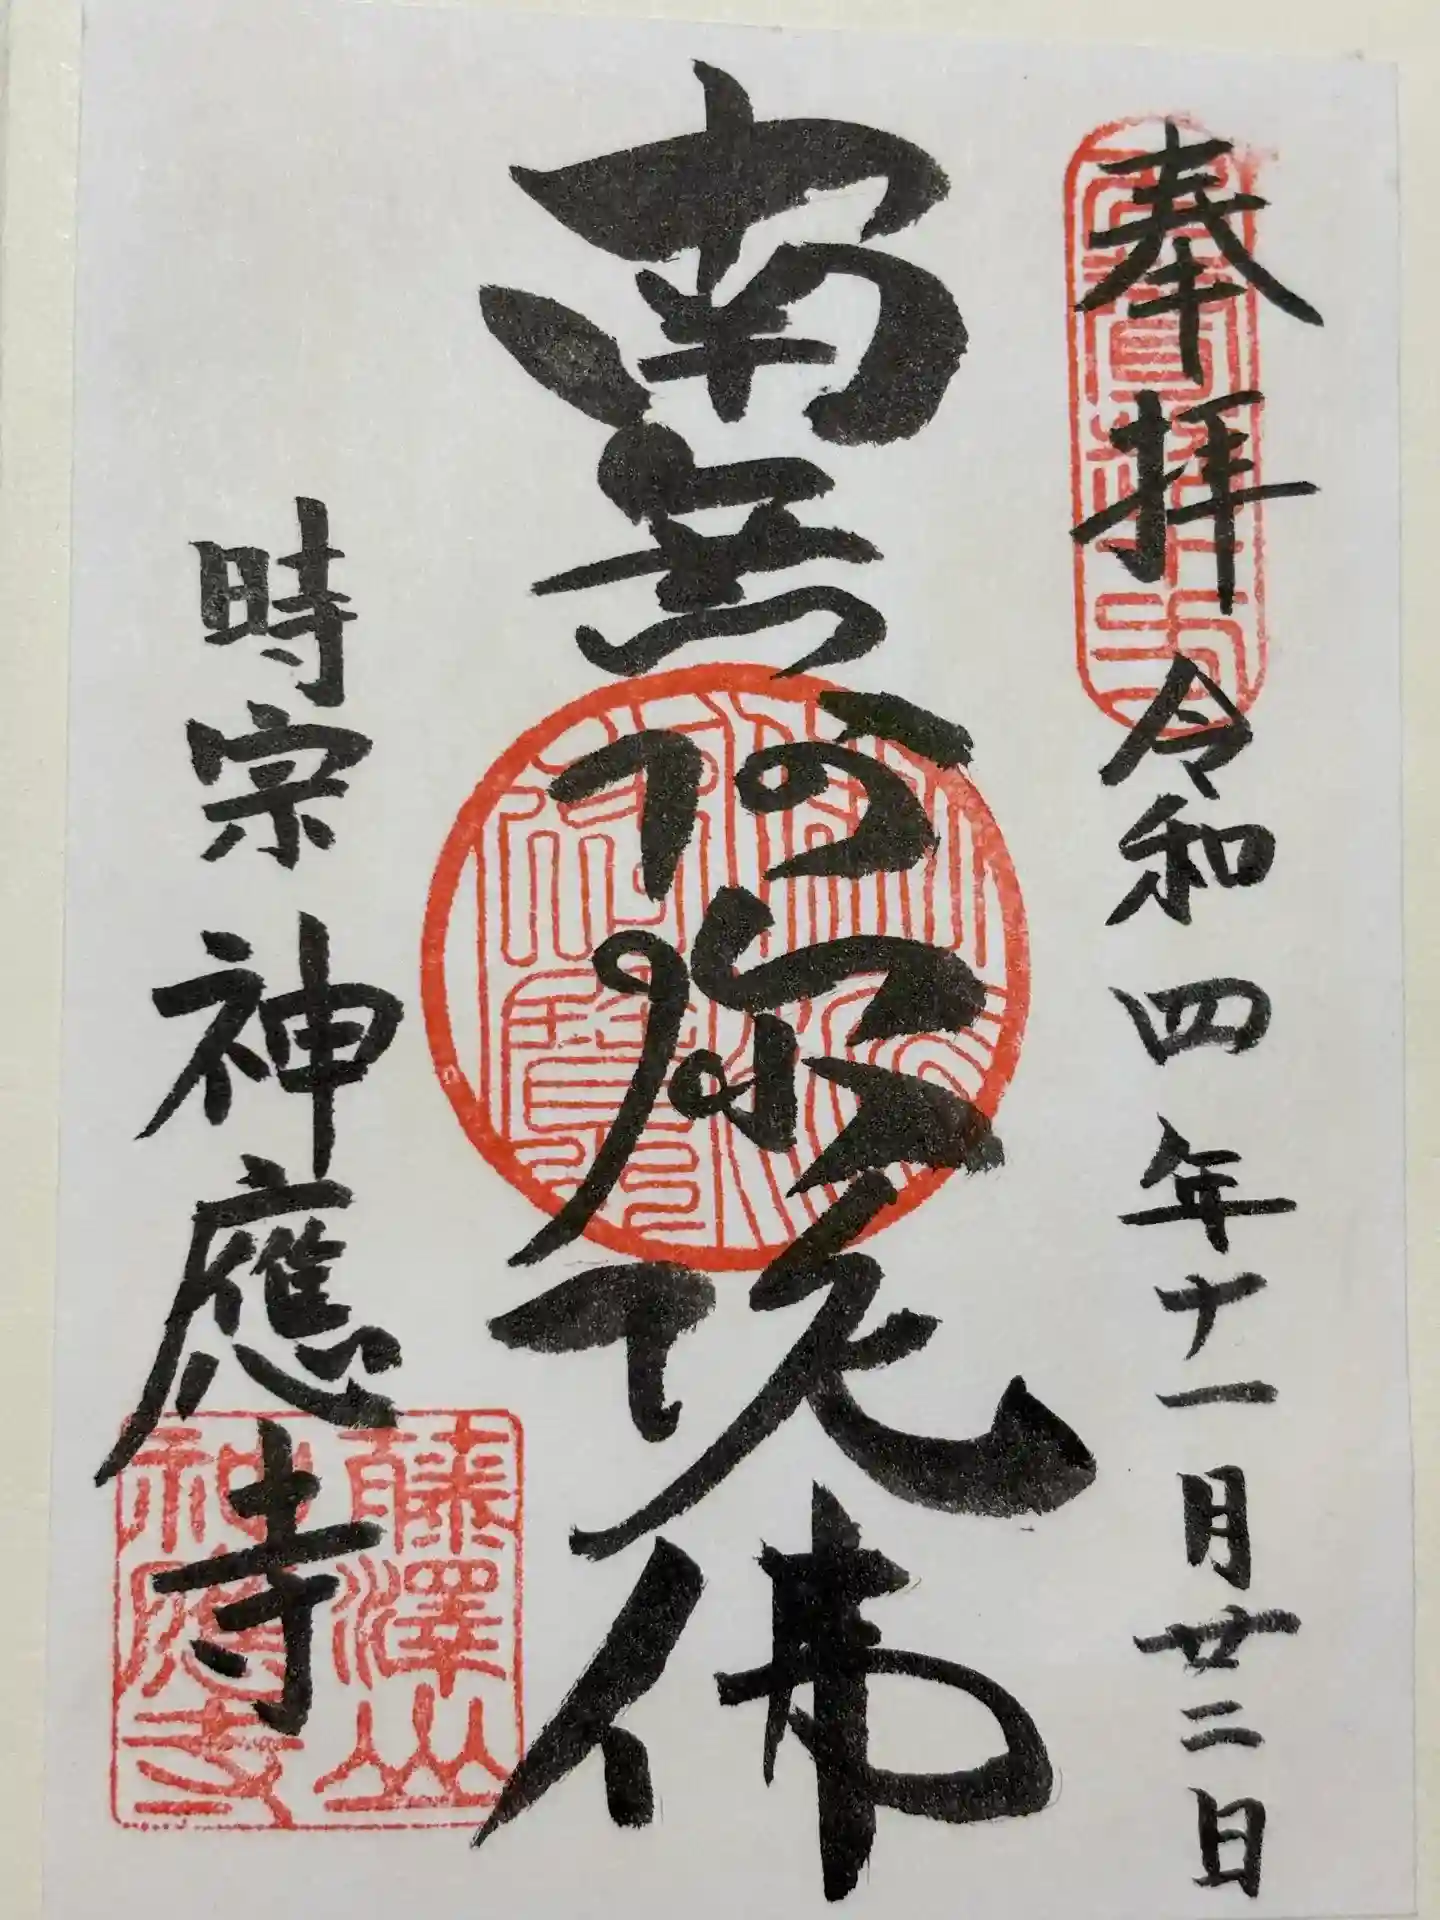 奉拝 令和四年十一月廿二日
南無阿弥陀佛
時宗 神應寺
藤澤山
神應寺